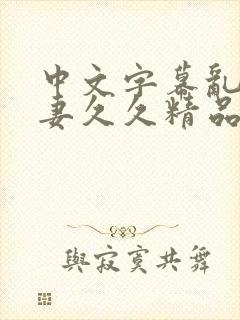 中文字幕亂
妻久久精品
與寂寞共舞